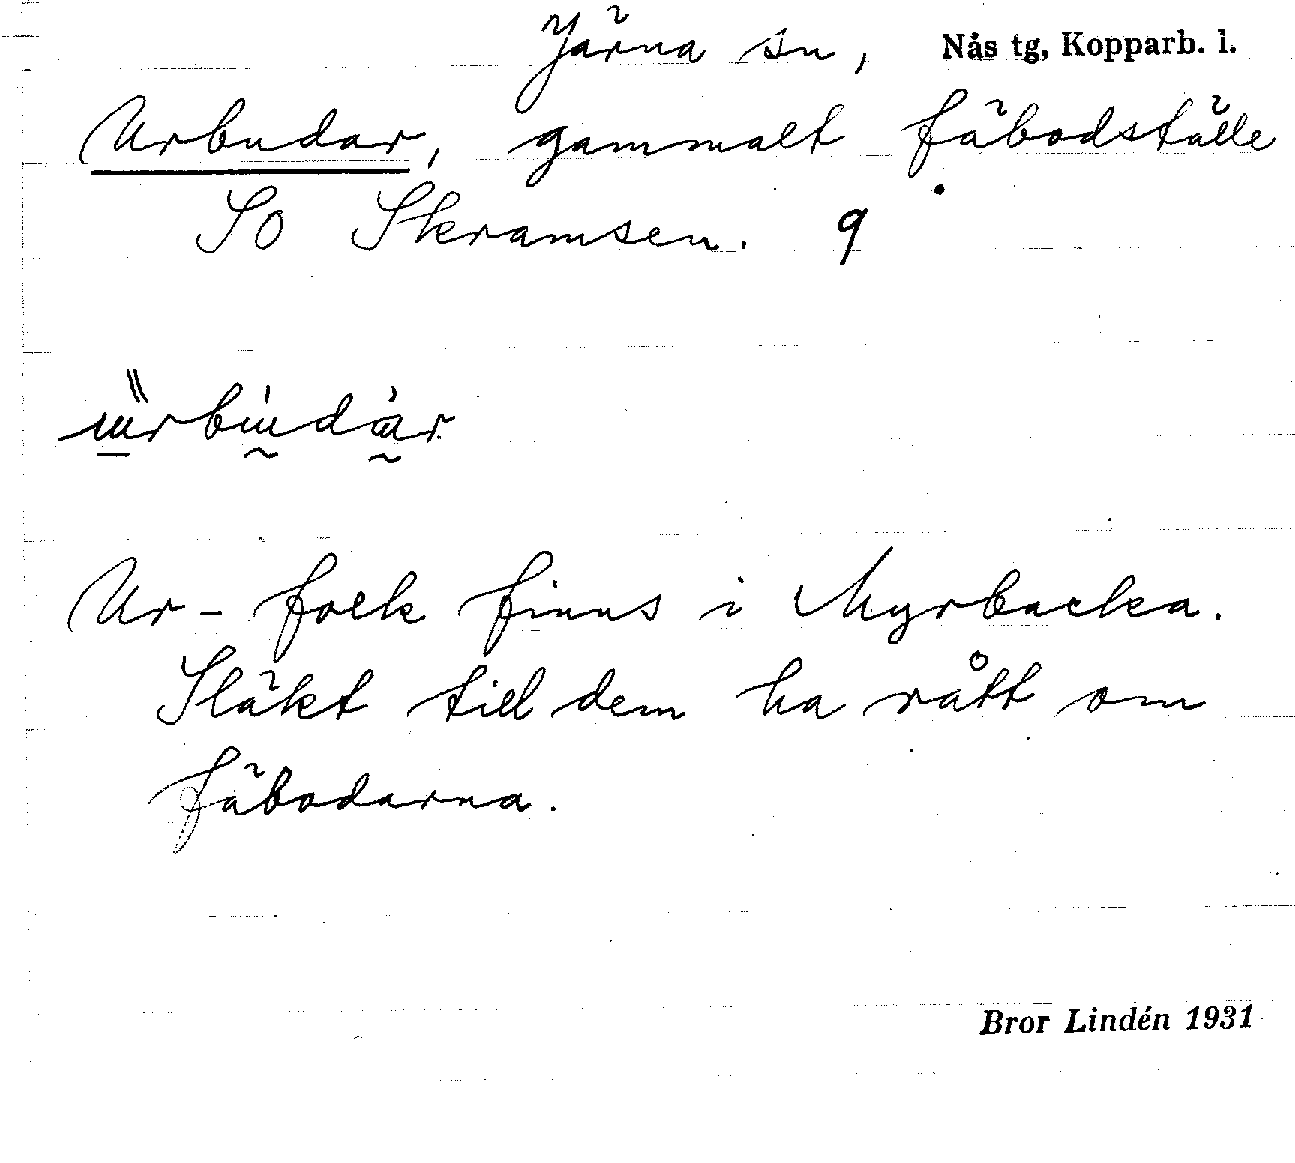 Järna sn, Nås tg, Kopparb. l.
Urbudar, gammalt fäbodställe
SO Skramsen. 9
Ur-folk finns i Myrbacka.
Släkt till dem ha rått om
fäbodarna.
Bror Lindén 1931